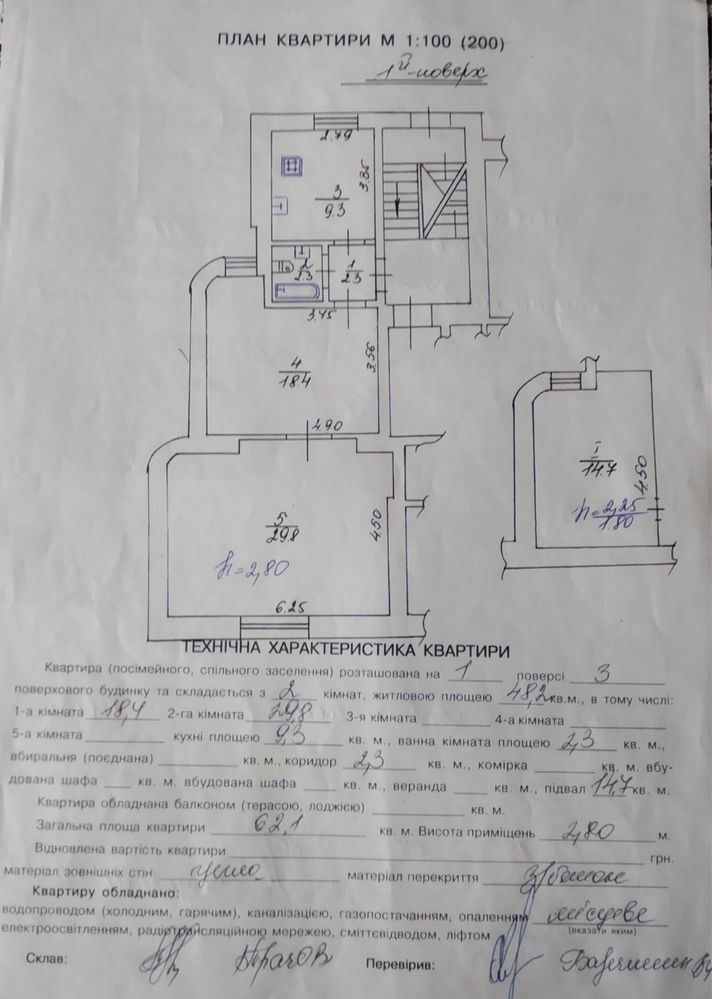 ПЛАН КВАРТИРИ М 1:100 (200)
1й поверх
2.79
3.35
3
9.3
2
2.3
1
2.3
3.45
3.56
4
18.4
4.90
I
14.7
4.50
h=2,25
1.80
5
29.8
4.50
h=2,80
6.25
ТЕХНІЧНА ХАРАКТЕРИСТИКА КВАРТИРИ
Квартира (посімейного, спільного заселення) розташована на 1 поверсі 3
поверхового будинку та складається з 2 кімнат, житловою площею 48,2 кв.м., в тому числі:
1-а кімната 18,4 2-га кімната 29,8 3-я кімната 4-а кімната
5-а кімната кухні площею 9,3 кв. м., ванна кімната площею 2,3 кв. м.,
вбиральня (поєднана) кв. м., коридор 2,3 кв. м., комірка кв. м. вбу-
дована шафа кв. м. вбудована шафа кв. м., веранда кв. м., підвал 14,7 кв. м.
Квартира обладнана балконом (терасою, лоджією) кв. м.
Загальна площа квартири 62,1 кв. м. Висота приміщень 2,80 м.
Відновлена вартість квартири грн.
матеріал зовнішніх стін матеріал перекриття З/бетон
Квартиру обладнано:
водопроводом (холодним, гарячим), каналізацією, газопостачанням, опаленням місцеве
(вказати яким)
електроосвітленням, радіотрансляційною мережею, сміттєвідводом, ліфтом
Склав: Перевірив: